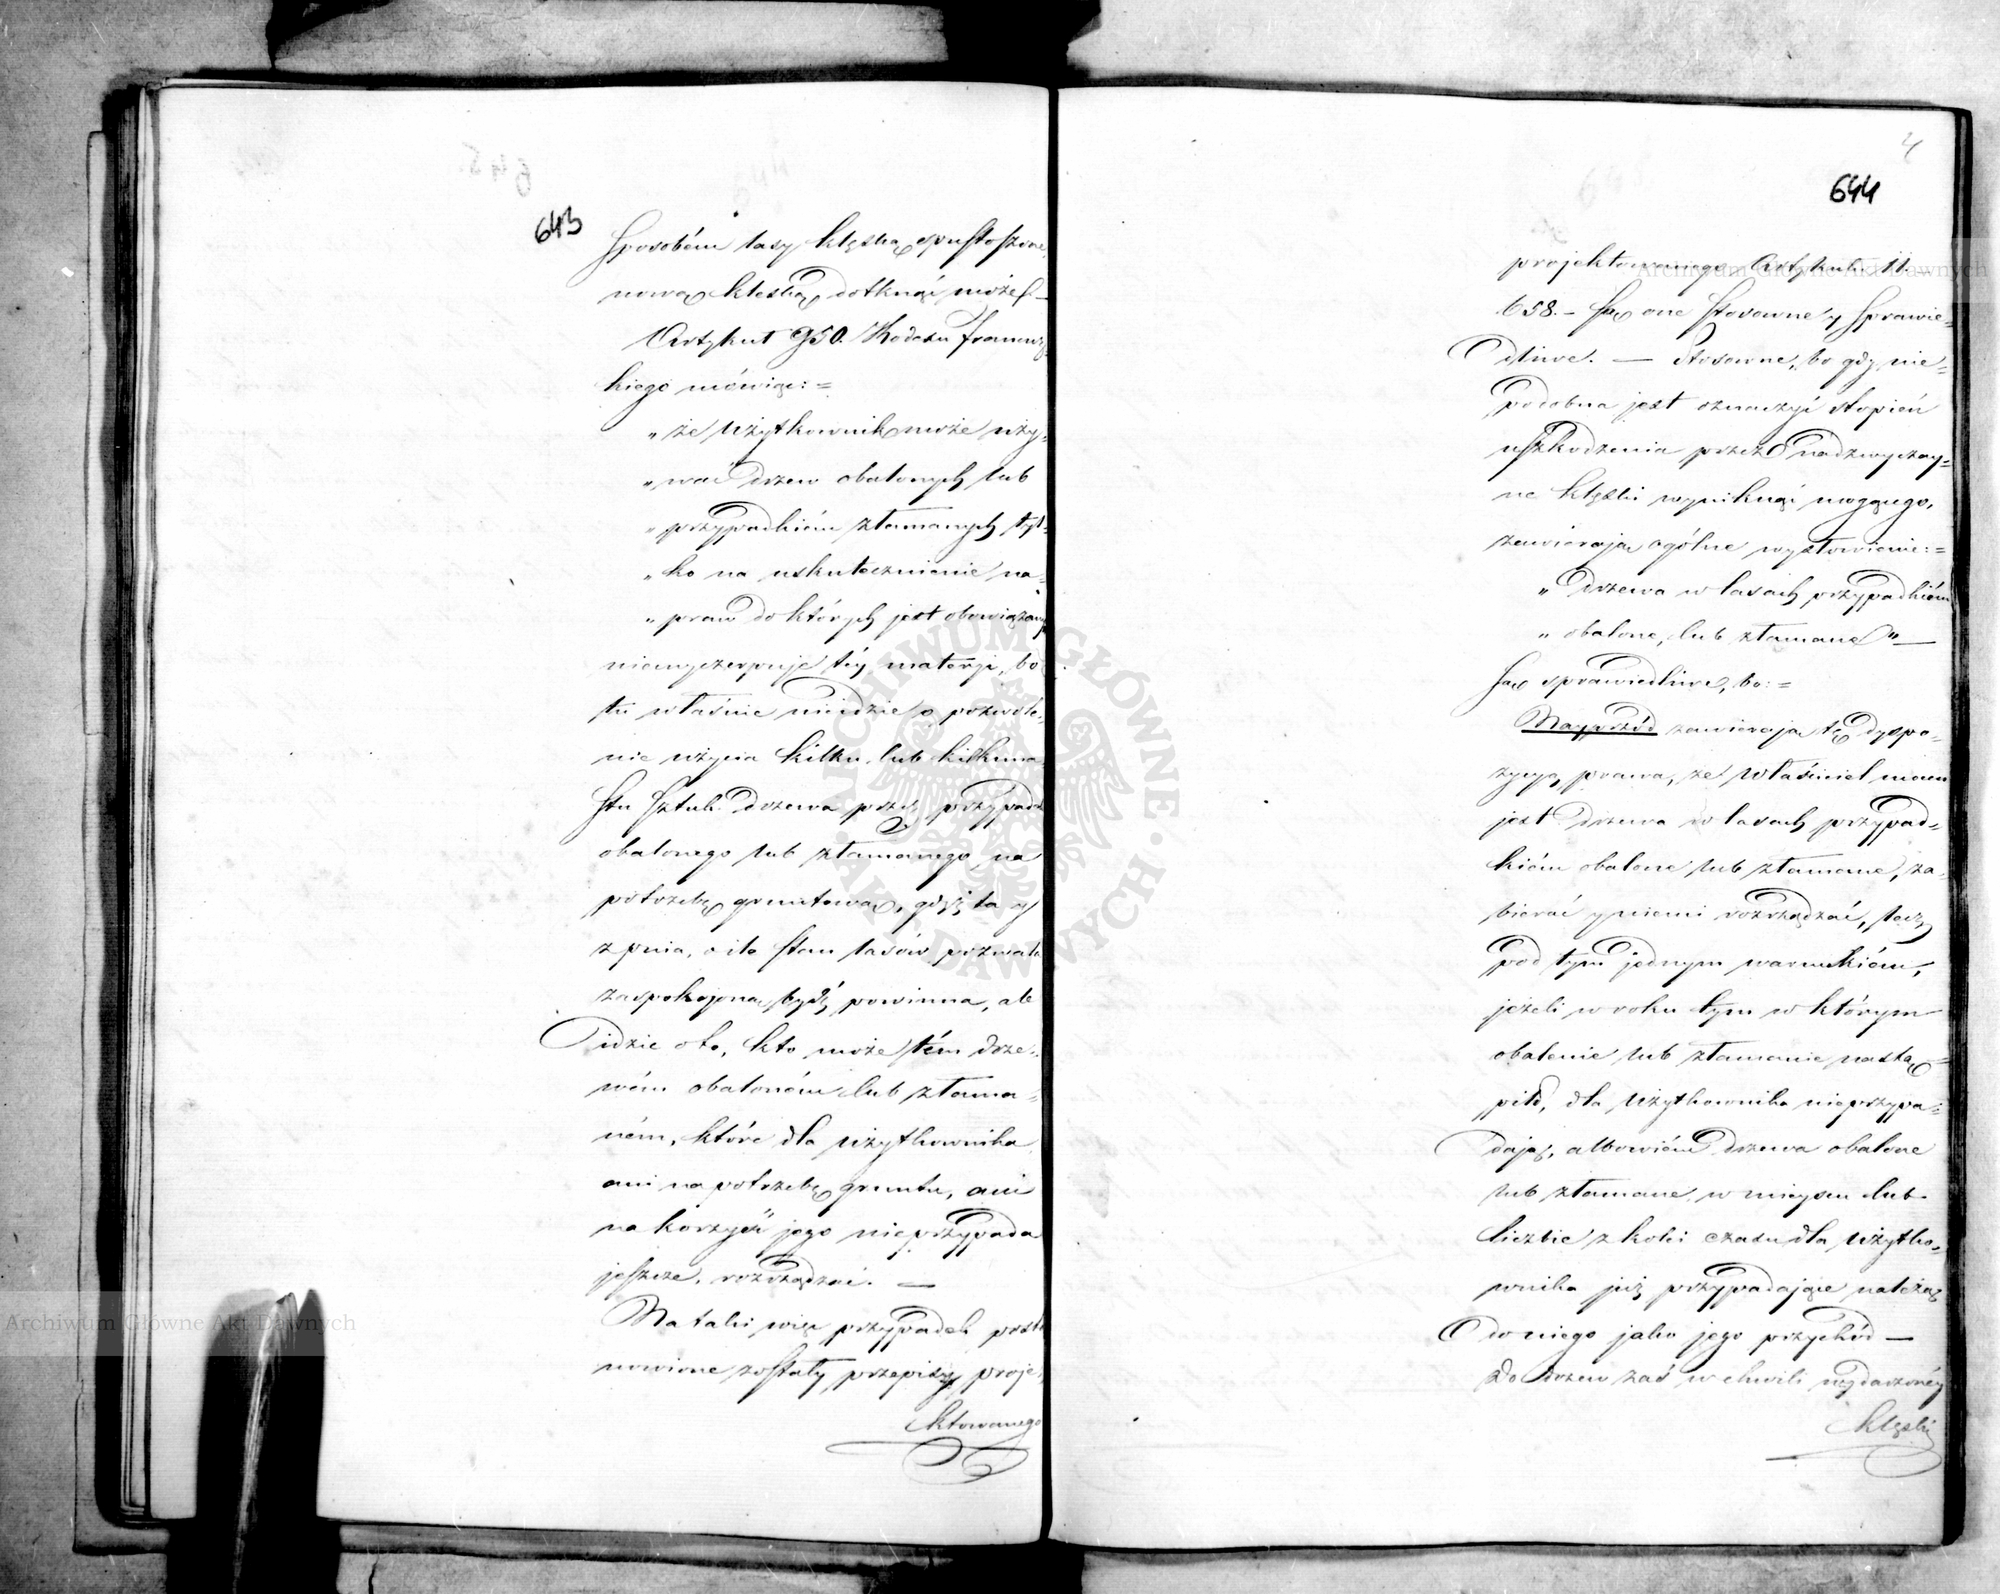 643
sposobem lasy klęską spustoszone,
nową klęską dotknąć może! —
Artykuł 950. Kodexu francuz=
kiego mówiąc: =
„ że użytkownik może uży=
„ wać drzew obalonych, lub
„ przypadkiém złamanych tyl=
„ ko na uskutecznienie na=
„ praw do których jest obowiązany
niewyczerpuje téy materyi, bo
tu właśnie nieidzie o pozwole=
nie użycia kilku, lub kilkuna
stu sztuk drzewa przez przypadek
obalonego lub złamanego, na
potrzebę gruntową, gdyż ta y
z pnia, o ile stan lasów pozwala
zaspokojoną bydź powinna, ale
idzie oto, kto może tém drze=
wém obaloném lub złama=
ném, które dla użytkownika
ani na potrzebę gruntu, ani
na korzyść jego nieprzypada
jeszcze, rozrządzać. —
Na taki więc przypadek posta
nowione zostały przepisy proje=
ktowanego
4
644
projektowanego Artykułu II.
658. — Są one stosowne y sprawie=
dliwe. — Stosowne, bo gdy nie=
podobna jest oznaczyć stopień
uszkodzenia przez nadzwyczay=
ne klęski wyniknąć mogącego,
zawierają ogólne wysłowienie: =
„ Drzewa w lasach przypadkiém
„ obalone, lub złamane" —
Są sprawiedliwe, bo: =
Nayprzód zawierają tę dyspo=
zycyą prawa, że właściciel mocen
jest drzewa w lasach przypad=
kiém obalone lub złamane, za=
bierać y niemi rozrządzać, lecz
pod tym jednym warunkiém,
jeżeli w roku tym w którym
obalenie lub złamanie nastą=
piło, dla użytkownika nieprzypa=
dają, albowiém drzewa obalone
lub złamane w mieyscu lub
liczbie z kolei czasu dla użytko=
wnika już przypadające należą
do niego jako jego przychód —
Do drzew zaś w chwili wydarzonéy
klęski
Archiwum Główne Akt Dawnych
Archiwum Główne Akt Dawnych
ARCHIWUM GŁÓWNE · AKT DAWNYCH ·